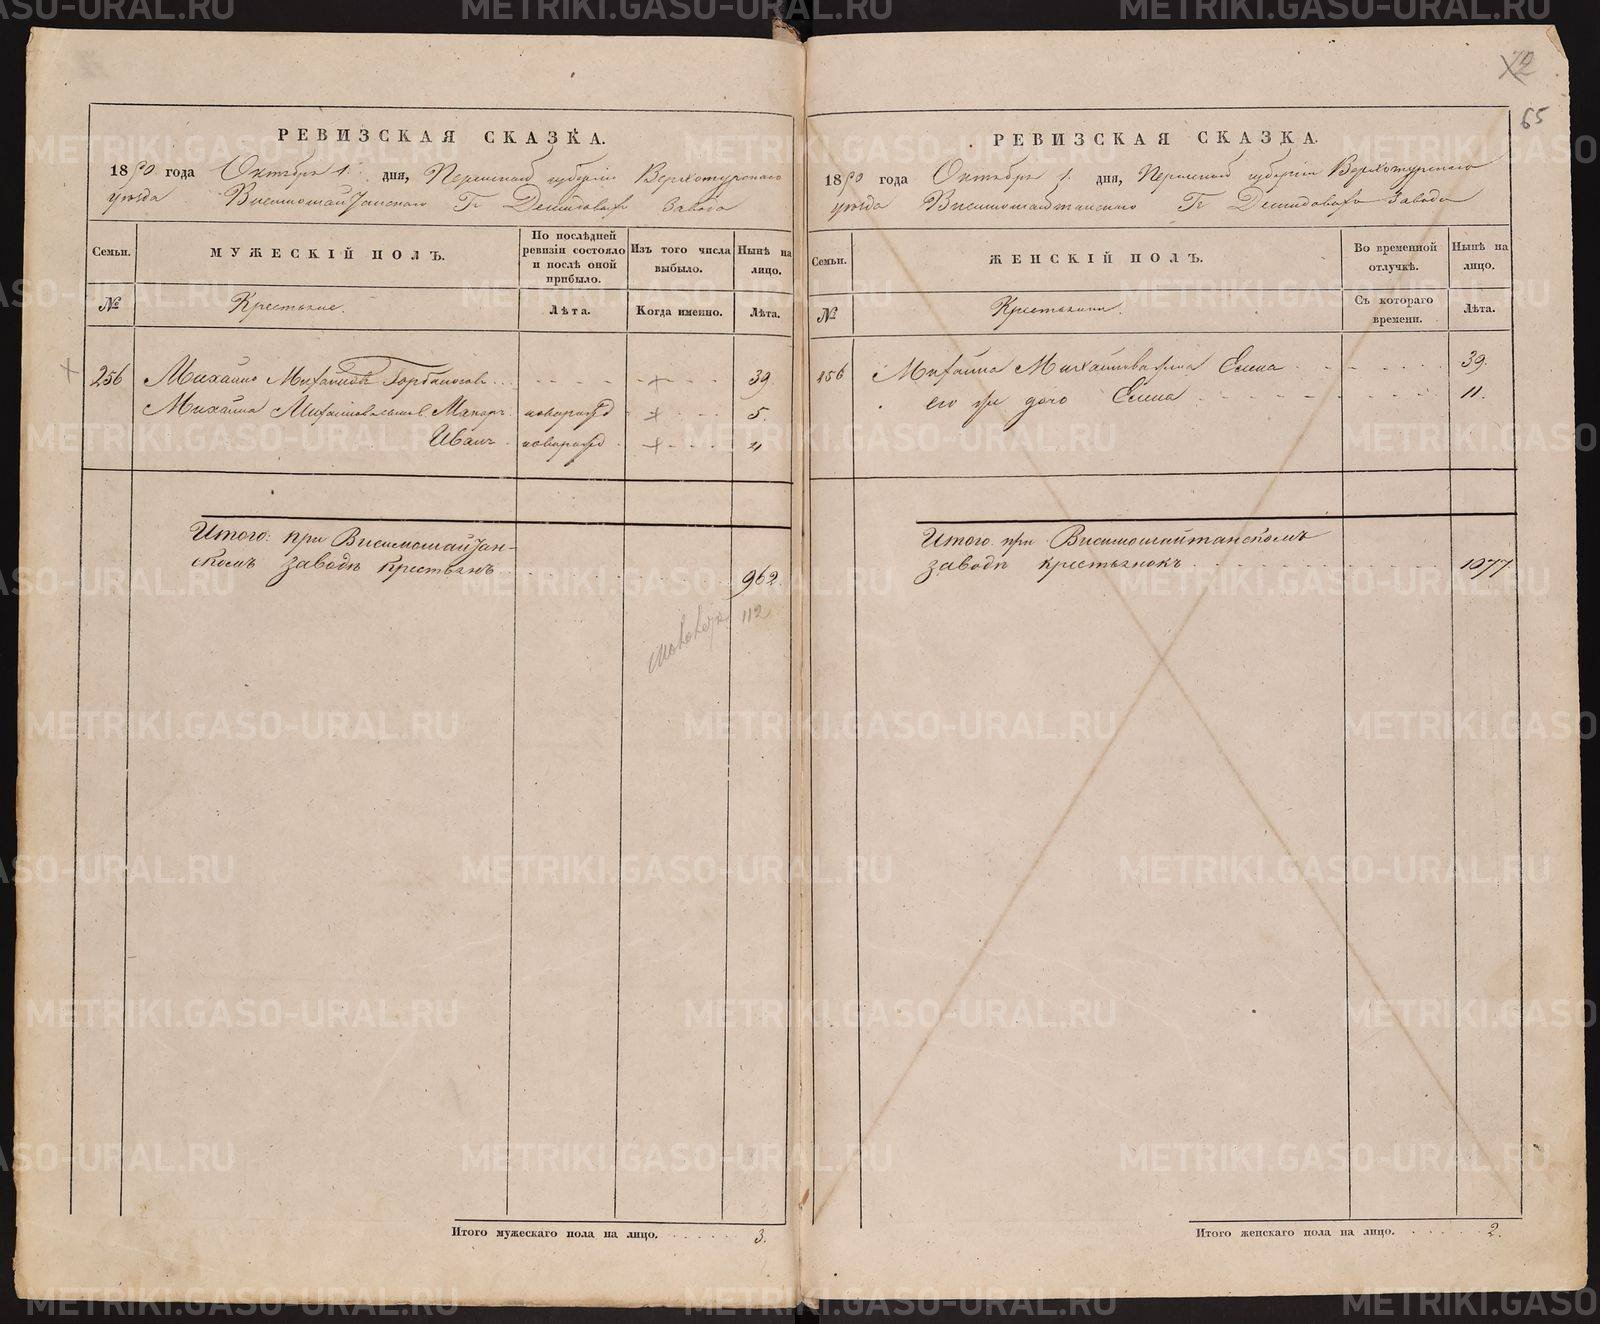 72
65
РЕВИЗСКАЯ СКАЗКА.
1850 года Октября 1. дня, Пермской губернии Верхотурского
уезда Висимошайтанского Гг Демидовых завода
Семьи.
МУЖЕСКІЙ ПОЛЪ.
По послѣдней ревизіи состояло и послѣ оной прибыло.
Изъ того числа выбыло.
Нынѣ на лицо.
№
Крестьяне.
Лѣта.
Когда именно.
Лѣта.
256 Михайло Михайловъ Горбуновъ 39.
Михайла Михайлова сынов. Макаръ. новорожд 5.
Иванъ новорожд 4
Итого: при Висимошайтан-
скомъ заводѣ крестьянъ 962
112
Итого мужескаго пола на лицо. 3.
РЕВИЗСКАЯ СКАЗКА.
1850 года Октября 1. дня, Пермской губернии Верхотурского
уезда Висимошайтанского Гг Демидовых завода
Семьи.
ЖЕНСКІЙ ПОЛЪ.
Во временной отлучкѣ.
Нынѣ на лицо.
№
Крестьянки.
Съ котораго времени.
Лѣта.
256 Михайла Михайлова жена Елена 39.
его же дочь Елена 11.
Итого при Висимошайтанскомъ
заводѣ крестьянокъ 1077
Итого женскаго пола на лицо. 2.
METRIKI.GASO-URAL.RU